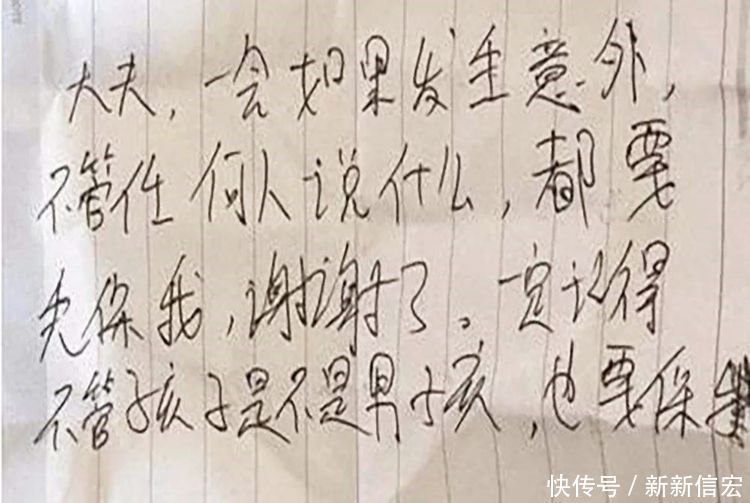 大夫，一会如果发生意外，
不管任何人说什么，都要
先保我，谢谢了。一定记得
不管孩子是不是男孩，也要保
快传号/新新信宏